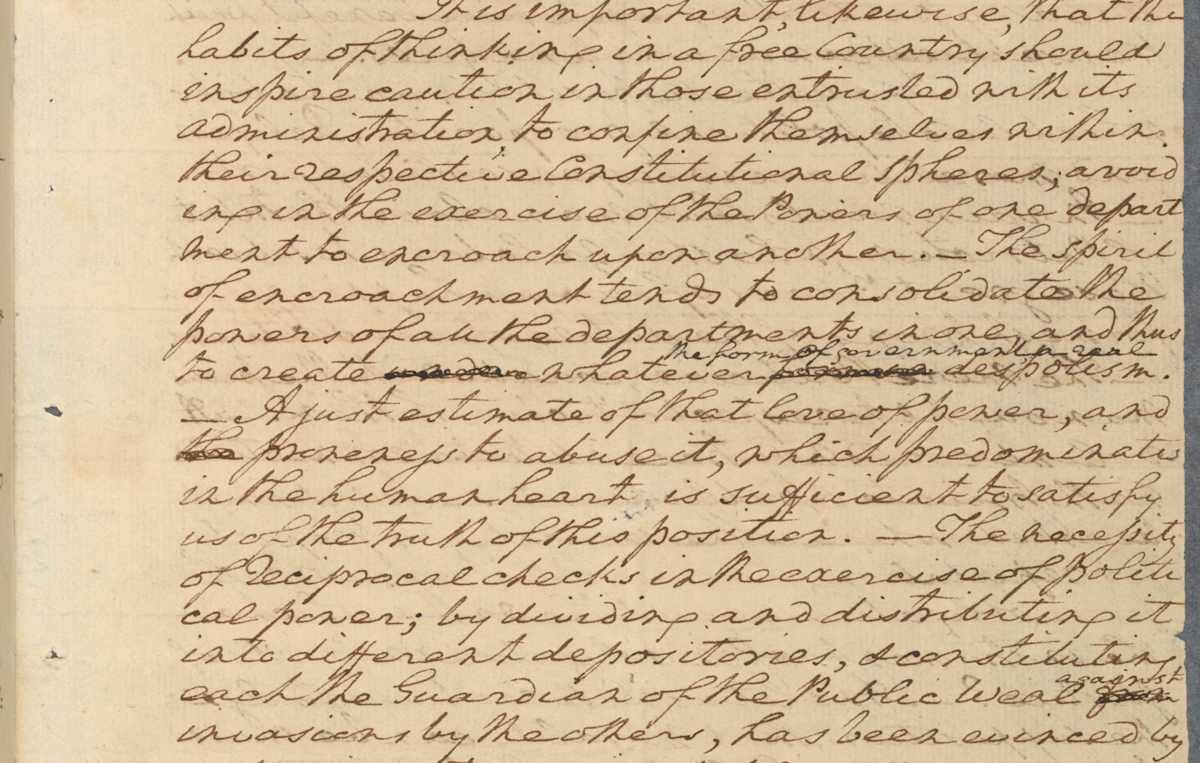 It is important, likewise, that the
habits of thinking in a free Country should
inspire caution in those entrusted with its
administration, to confine themselves within
their respective Constitutional Spheres; avoid
ing in the exercise of the Powers of one depart
ment to encroach upon another. – The spirit
of encroachment tends to consolidate the
powers of all the departments in one, and thus
the form of government a real
to create whatever despotism.
– A just estimate of that love of power, and
the proneness to abuse it, which predominates
in the human heart is sufficient to satisfy
us of the truth of this position. – The necessity
of reciprocal checks in the exercise of politi
cal power; by dividing and distributing it
into different depositories, & constituting
each the Guardian of the Public Weal
against
from
invasions by the others, has been evinced by